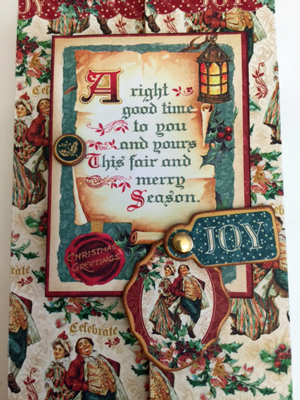 JOY
Celebrate
A right
good time
to you
and yours
This fair and
merry
Season.
JOY
CHRISTMAS
GREETINGS
Celebrate
Celebrate